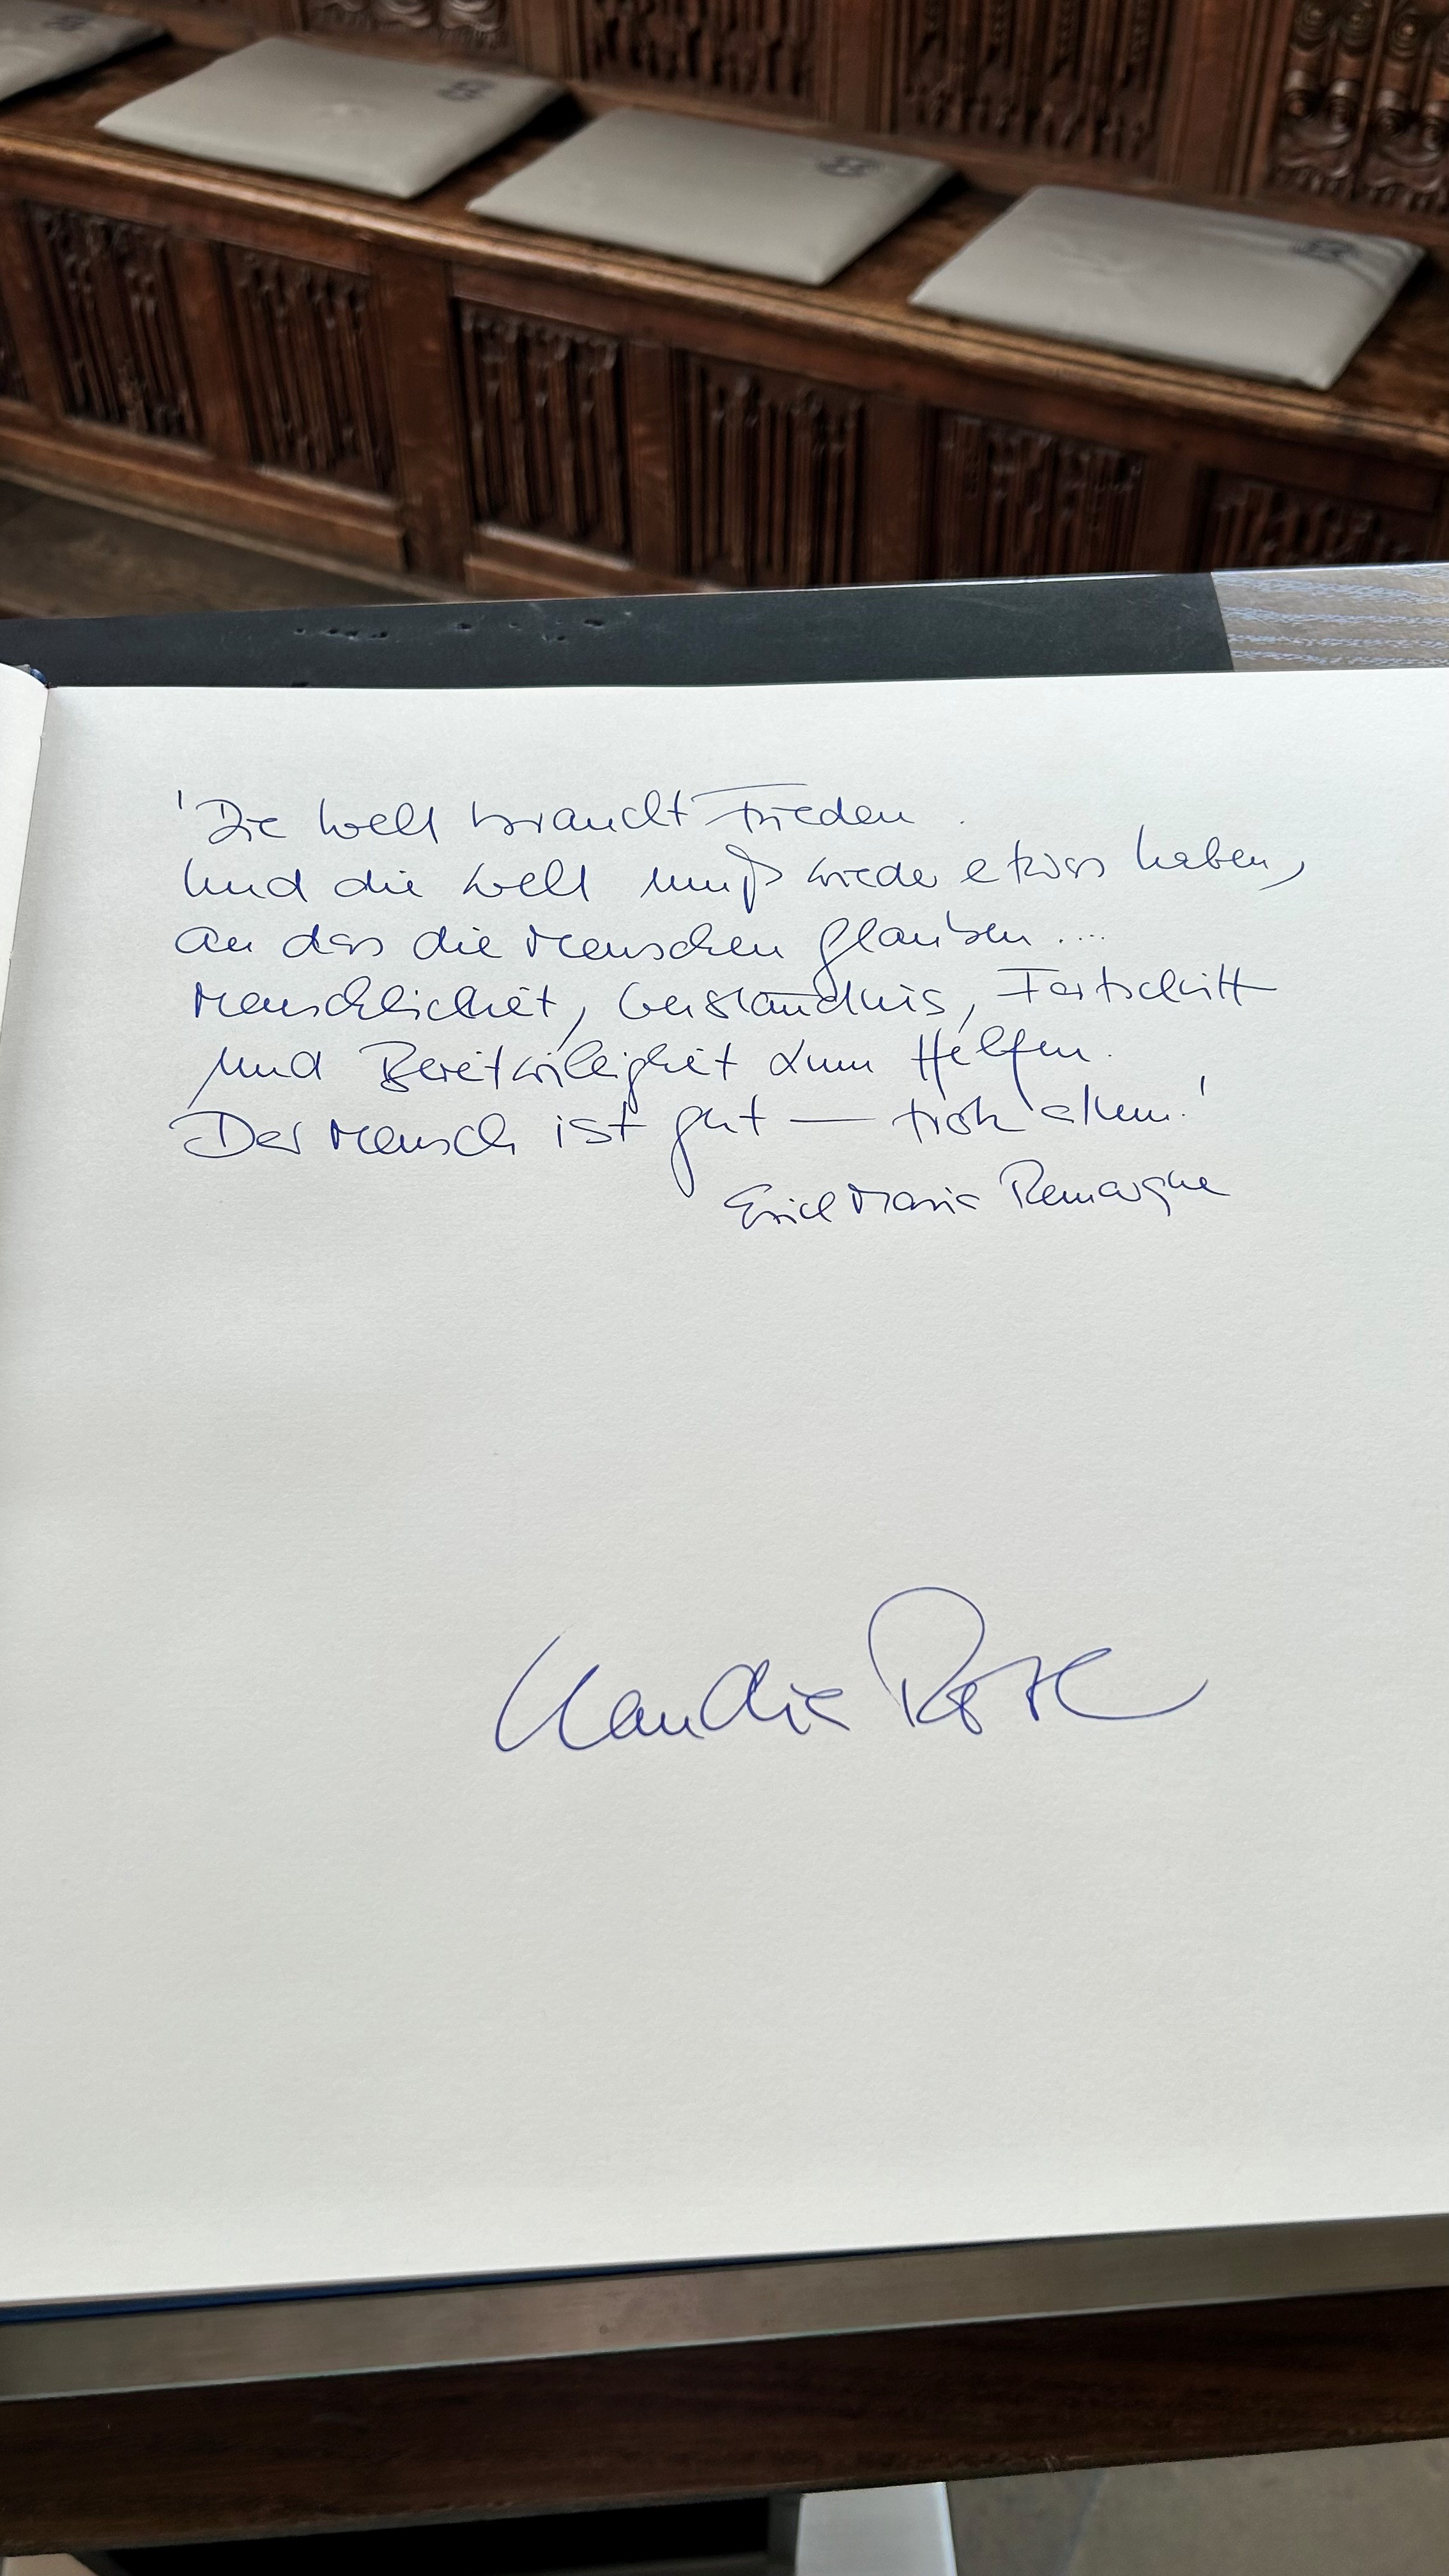 'Die Welt braucht Frieden.
Und die Welt muß wieder etwas haben,
an das die Menschen glauben ...
Menschlichkeit, Verständnis, Fortschritt
und Bereitwilligkeit zum Helfen.
Der Mensch ist gut — trotz allem.'
Erich Maria Remarque
Claudia Roth